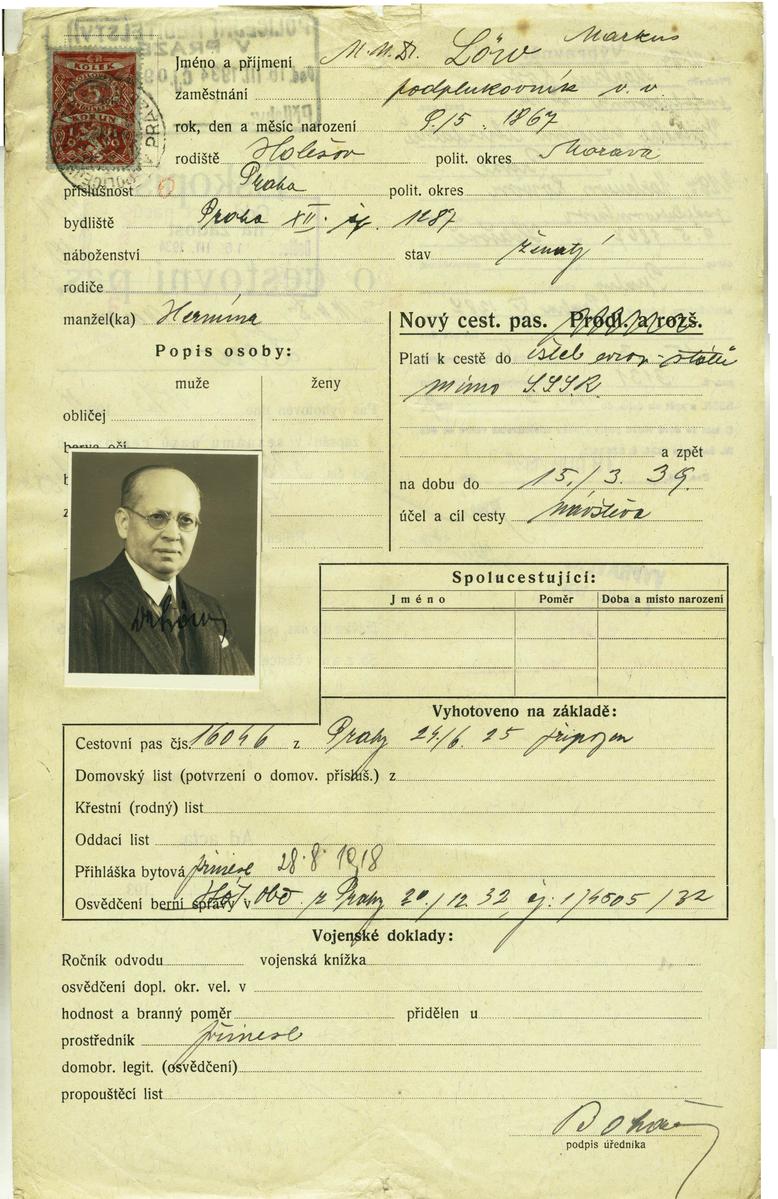 KOLEK
KORUN
V PRAZE
Jméno a příjmení M.U.Dr. Löw Markus
zaměstnání podplukovník v. v.
rok, den a měsíc narození 9./5. 1867
rodiště Holešov polit. okres Morava
příslušnost Praha polit. okres
bydliště Praha XII. 1287
náboženství stav ženatý
rodiče
manžel(ka) Hermína
Nový cest. pas. Prodl. a rozš.
Popis osoby:
Platí k cestě do všech evrop. států
muže ženy
mimo S.S.S.R.
obličej
barva očí
a zpět
na dobu do 15./3. 39.
účel a cíl cesty návštěva
Dr Löw
Spolucestující:
Jméno Poměr Doba a místo narození
Vyhotoveno na základě:
Cestovní pas čís. 16046 z Prahy 24/6. 25 připojen
Domovský list (potvrzení o domov. přísluš.) z
Křestní (rodný) list
Oddací list
Přihláška bytová přinesl 28.8.1918
Osvědčení berní správy v z Prahy 20/12. 32, čj: 1/4505/32
Vojenské doklady:
Ročník odvodu vojenská knížka
osvědčení dopl. okr. vel. v
hodnost a branný poměr přidělen u
prostředník přinesl
domobr. legit. (osvědčení)
propouštěcí list
podpis úředníka